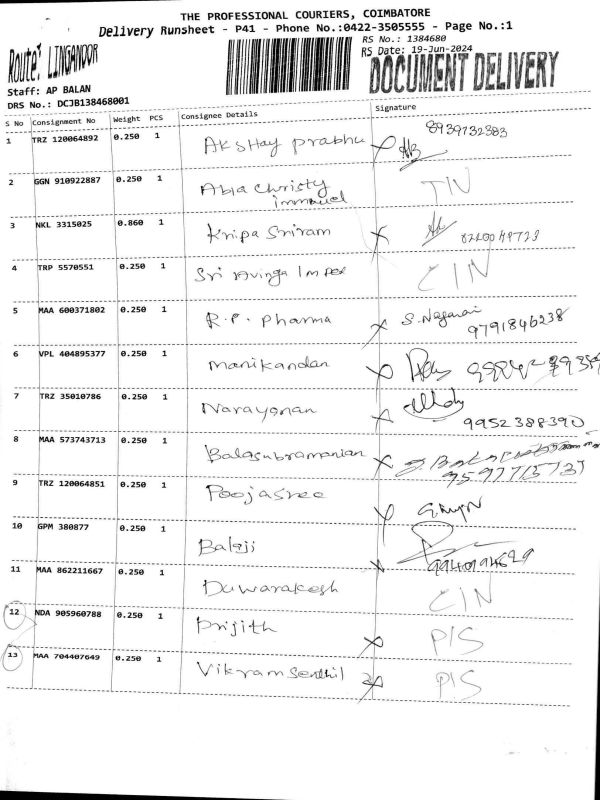 THE PROFESSIONAL COURIERS, COIMBATORE
Delivery Runsheet - P41 - Phone No.:0422-3505555 - Page No.:1
RS No.: 1384680
RS Date: 19-Jun-2024
Route: LINGANOOR
DOCUMENT DELIVERY
Staff: AP BALAN
DRS No.: DCJB138468001
S No Consignment No Weight PCS Consignee Details Signature
1 TRZ 120064892 0.250 1 Akshay prabhu 8939732383
2 GGN 910922887 0.250 1 Abia Christy
immanuel
3 NKL 3315025 0.860 1 Kripa Sriram
4 TRP 5570551 0.250 1 Sri Avinga Impex CIN
5 MAA 600371802 0.250 1 R.P. Pharma S. Nagamai
9791846238
6 VPL 404895377 0.250 1 Manikandan
7 TRZ 35010786 0.250 1 Narayanan
9952388390
8 MAA 573743713 0.250 1 Balasubramanian
9597715737
9 TRZ 120064851 0.250 1 Poojasree
10 GPM 380877 0.250 1 Balaji
9940194629
11 MAA 862211667 0.250 1 Duwarakesh CIN
12 NDA 905960788 0.250 1 Prijith P1S
13 MAA 704407649 0.250 1 Vikram Senthil P1S